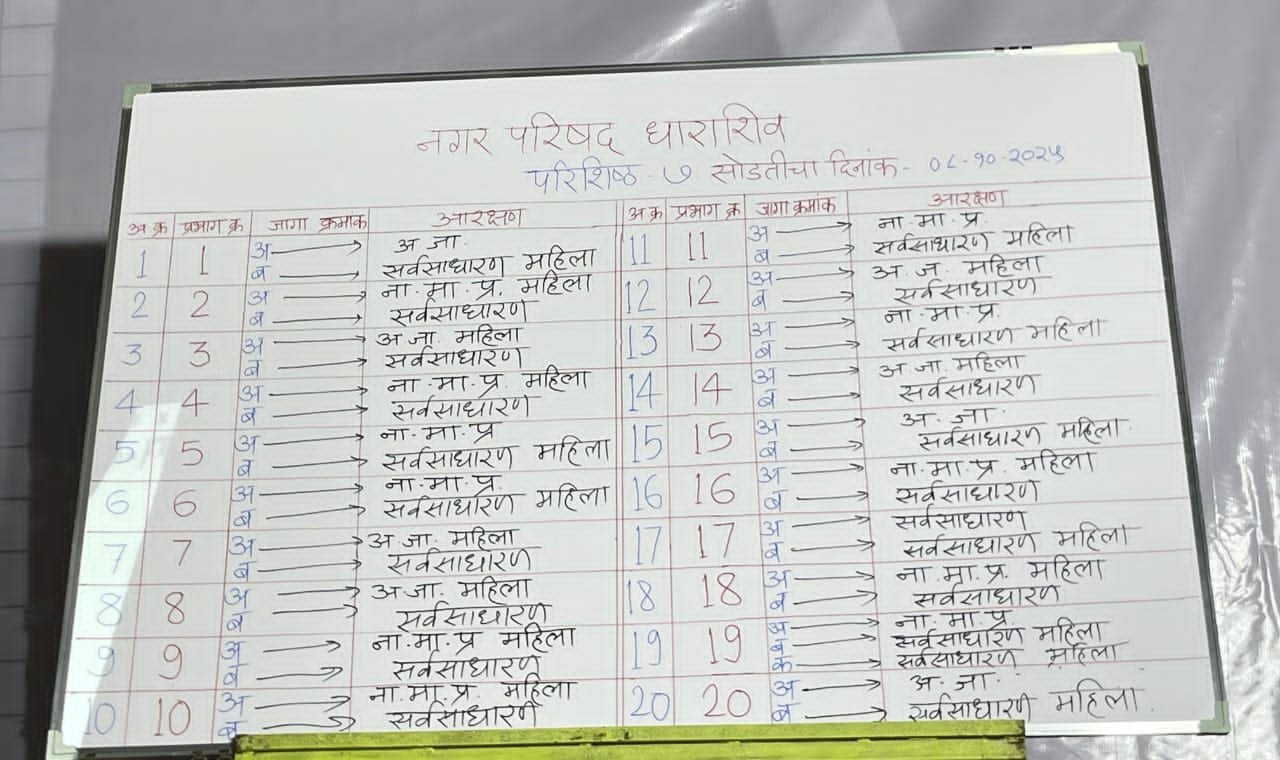 नगर परिषद धाराशिव
परिशिष्ठ - ७ सोडतीचा दिनांक - ०८-१०-२०२५
अ क्र प्रभाग क्र जागा क्रमांक आरक्षण
1 1 अ → अ जा.
ब → सर्वसाधारण महिला
2 2 अ → ना. मा. प्र. महिला
ब → सर्वसाधारण
3 3 अ → अ जा. महिला
ब → सर्वसाधारण
4 4 अ → ना. मा. प्र. महिला
ब → सर्वसाधारण
5 5 अ → ना. मा. प्र
ब → सर्वसाधारण महिला
6 6 अ → ना. मा. प्र.
ब → सर्वसाधारण महिला
7 7 अ → अ जा. महिला
ब → सर्वसाधारण
8 8 अ → अ जा. महिला
ब → सर्वसाधारण
9 9 अ → ना. मा. प्र महिला
ब → सर्वसाधारण
10 10 अ → ना. मा. प्र. महिला
ब → सर्वसाधारण
अ क्र प्रभाग क्र जागा क्रमांक आरक्षण
11 11 अ → ना. मा. प्र.
ब → सर्वसाधारण महिला
12 12 अ → अ. ज. महिला
ब → सर्वसाधारण
13 13 अ → ना. मा. प्र.
ब → सर्वसाधारण महिला
14 14 अ → अ जा महिला
ब → सर्वसाधारण
15 15 अ → अ. जा.
ब → सर्वसाधारण महिला.
16 16 अ → ना. मा. प्र. महिला
ब → सर्वसाधारण
17 17 अ → सर्वसाधारण
ब → सर्वसाधारण महिला
18 18 अ → ना. मा. प्र. महिला
ब → सर्वसाधारण
19 19 अ → ना. मा. प्र.
ब → सर्वसाधारण महिला
क → सर्वसाधारण महिला
20 20 अ → अ. जा.
ब → सर्वसाधारण महिला.